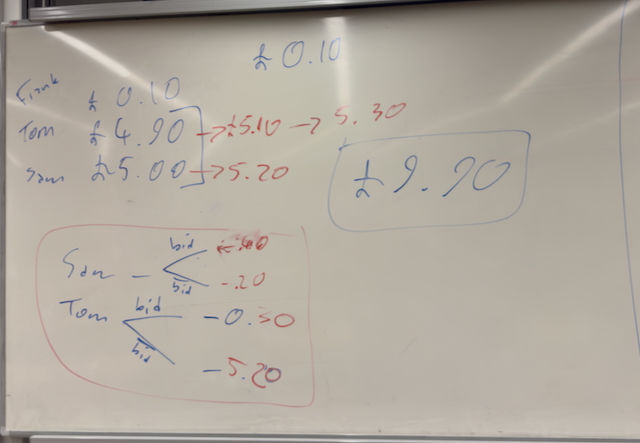 £0.10
Frank £ 0.10
Tom £4.90 → £5.10 → 5.30
Sam £5.00 → 5.20
£9.90
bid
Sam -
bid -.20
Tom bid -0.30
bid -5.20